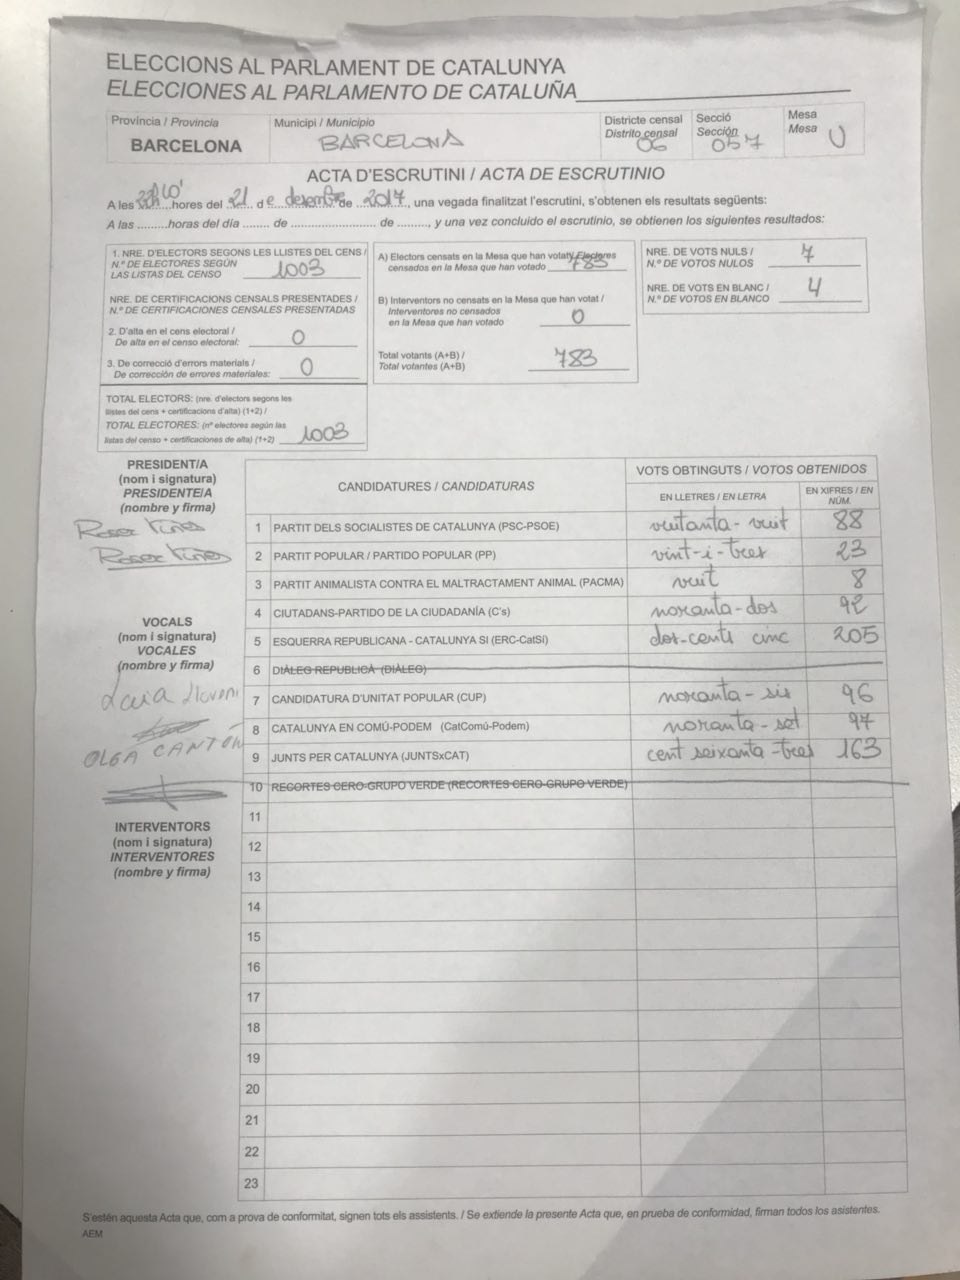 ELECCIONS AL PARLAMENT DE CATALUNYA
ELECCIONES AL PARLAMENTO DE CATALUÑA
Provincia / Provincia
BARCELONA
Municipi / Municipio
BARCELONA
Districte censal
Distrito censal
06
Secció
Sección
057
Mesa
Mesa
U
ACTA D'ESCRUTINI / ACTA DE ESCRUTINIO
A les 22h10' hores del 21 de desembre de 2017, una vegada finalitzat l'escrutini, s'obtenen els resultats següents:
A las ......... horas del día ....... de ........................... de ........, y una vez concluido el escrutinio, se obtienen los siguientes resultados:
1. NRE. D'ELECTORS SEGONS LES LLISTES DEL CENS /
N.º DE ELECTORES SEGÚN
LAS LISTAS DEL CENSO 1003
NRE. DE CERTIFICACIONS CENSALS PRESENTADES /
N.º DE CERTIFICACIONES CENSALES PRESENTADAS
2. D'alta en el cens electoral /
De alta en el censo electoral: 0
3. De correcció d'errors materials /
De corrección de errores materiales: 0
TOTAL ELECTORS: (nre. d'electors segons les
llistes del cens + certificacions d'alta) (1+2) /
TOTAL ELECTORES: (nº electores según las
listas del censo + certificaciones de alta) (1+2) 1003
A) Electors censats en la Mesa que han votat / Electores
censados en la Mesa que han votado 783
B) Interventors no censats en la Mesa que han votat /
Interventores no censados
en la Mesa que han votado 0
Total votants (A+B) /
Total votantes (A+B) 783
NRE. DE VOTS NULS /
N.º DE VOTOS NULOS 7
NRE. DE VOTS EN BLANC /
N.º DE VOTOS EN BLANCO 4
PRESIDENT/A
(nom i signatura)
PRESIDENTE/A
(nombre y firma)
Roser
Roser
VOCALS
(nom i signatura)
VOCALES
(nombre y firma)
OLGA CANTÓN
INTERVENTORS
(nom i signatura)
INTERVENTORES
(nombre y firma)
CANDIDATURES / CANDIDATURAS
VOTS OBTINGUTS / VOTOS OBTENIDOS
EN LLETRES / EN LETRA
EN XIFRES / EN NÚM.
1 PARTIT DELS SOCIALISTES DE CATALUNYA (PSC-PSOE) vuitanta-vuit 88
2 PARTIT POPULAR / PARTIDO POPULAR (PP) vint-i-tres 23
3 PARTIT ANIMALISTA CONTRA EL MALTRACTAMENT ANIMAL (PACMA) vuit 8
4 CIUTADANS-PARTIDO DE LA CIUDADANÍA (C's) noranta-dos 92
5 ESQUERRA REPUBLICANA - CATALUNYA SI (ERC-CatSí) dos-cents cinc 205
6 DIÀLEG REPUBLICÀ (DIÀLEG)
7 CANDIDATURA D'UNITAT POPULAR (CUP) noranta-sis 96
8 CATALUNYA EN COMÚ-PODEM (CatComú-Podem) noranta-set 97
9 JUNTS PER CATALUNYA (JUNTSxCAT) cent seixanta-tres 163
10 RECORTES CERO-GRUPO VERDE (RECORTES CERO-GRUPO VERDE)
11
12
13
14
15
16
17
18
19
20
21
22
23
S'estén aquesta Acta que, com a prova de conformitat, signen tots els assistents. / Se extiende la presente Acta que, en prueba de conformidad, firman todos los asistentes.
AEM